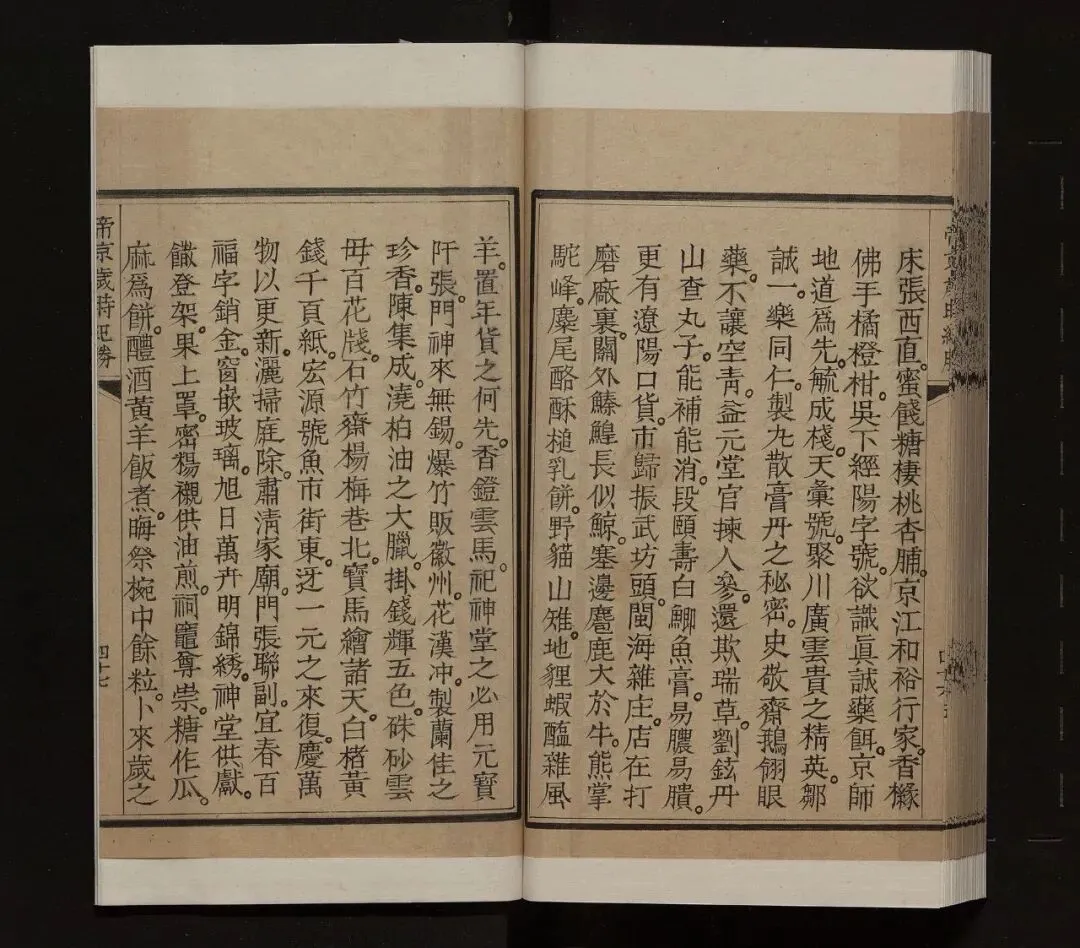 床張西直。蜜餞糖棲桃杏脯。京江和裕行家。香櫞
佛手橘橙柑。吳下經陽字號。欲識眞誠藥餌。京師
地道爲先。毓成棧天彙號。聚川廣雲貴之精英。鄒
誠一樂同仁。製丸散膏丹之秘密。史敬齋鵝翎眼
藥。不讓空青。益元堂官揀人參。還欺瑞草。劉鉉丹
山查丸子。能補能消。段頤壽白鯽魚膏。易膿易膭。
更有遼陽口貨。市歸振武坊頭。閩海雜庄。店在打
磨廠裏。關外鰊鰉長似鯨。塞邊麅鹿大於牛。熊掌
駝峰。麋尾酪酥槌乳餅。野貓山雉。地狸蝦醢雜風
羊。置年貨之何先。香鐙雲馬。祀神堂之必用。元寶
阡張。門神來無錫。爆竹販徽州。花漢冲。製蘭佳之
珍香。陳集成。澆柏油之大臘。掛錢輝五色。硃砂雲
毋百花牋。石竹齋楊梅巷北。寶馬繪諸天。白楮黃
錢千頁紙。宏源號魚市街東。迓一元之來復。慶萬
物以更新。灑掃庭除。肅清家廟。門張聯副。宜春百
福字銷金。窗嵌玻璃。旭日萬卉明錦綉。神堂供獻。
饊登架。果上罩。密楊襯供油煎。祠竈尊崇。糖作瓜。
麻爲餅。醴酒黃羊飯煮。晦祭椀中餘粒。卜來歲之
帝京歲時紀勝
四十七